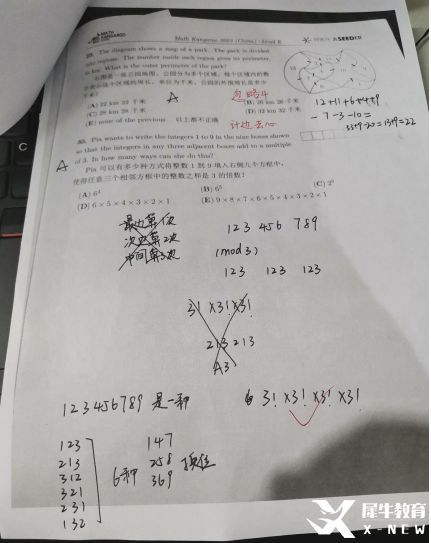 MATH KANGAROO
Math Kangaroo 2023 (China) - Level E
SEEDER
29. The diagram shows a map of a park. The park is divided
into regions. The number inside each region gives its perimeter,
in km. What is the outer perimeter of the park?
下图是一张公园地图，公园分为多个区域，每个区域内的数
字表示这个区域的周长，单位为千米，公园的外围周长是多少
千米？
(A) 22 km 22 千米
(B) 26 km 26 千米
(C) 28 km 28 千米
(D) 32 km 32 千米
(E) none of the previous 以上都不正确
A
忽略4
计边去心
12+11+6+4+9
-7-3-10=
30. Pia wants to write the integers 1 to 9 in the nine boxes shown
so that the integers in any three adjacent boxes add to a multiple
of 3. In how many ways can she do this?
A
Pia 可以有多少种方式将整数 1 到 9 填入右侧九个方框中，
使得任意三个相邻方框中的整数之和是 3 的倍数？
(A) 6⁴
(B) 6⁵
(C) 2⁹
(D) 6 × 5 × 4 × 3 × 2 × 1
(E) 9 × 8 × 7 × 6 × 5 × 4 × 3 × 2 × 1
123 456 789
(mod 3)
123 123 123
3! X3! X3!
213 213
A3
123456789 是一种
3! ×3! ×3! ×3!
123
213
312
321
231
132
6种
147
258
369
换位
犀牛教育
X-NEW